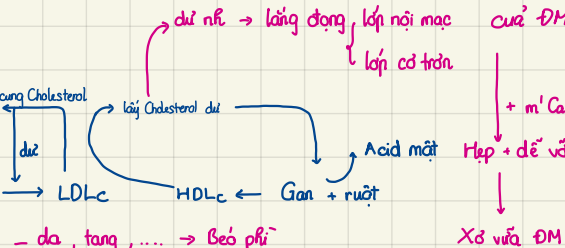 dư nh → lắng đọng lớp nội mạc của ĐM
lớp cơ trơn
cung Cholesterol
lấy Cholesterol dư
+ m' Ca
dư
Acid mật
Hẹp + dễ vỡ
→ LDLc HDLc ← Gan + ruột
– da, tạng, .... → Béo phì
Xơ vữa ĐM